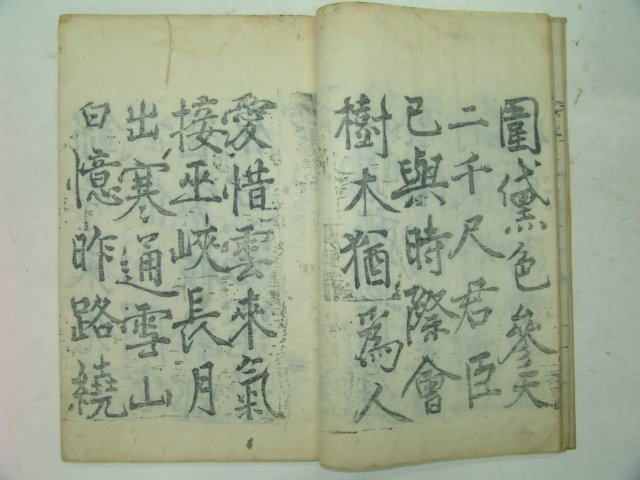 圍黛色參天
二千尺君臣
已與時際會
樹木猶爲人
愛惜雲來氣
接巫峽長月
出寒通雪山
白憶昨路繞